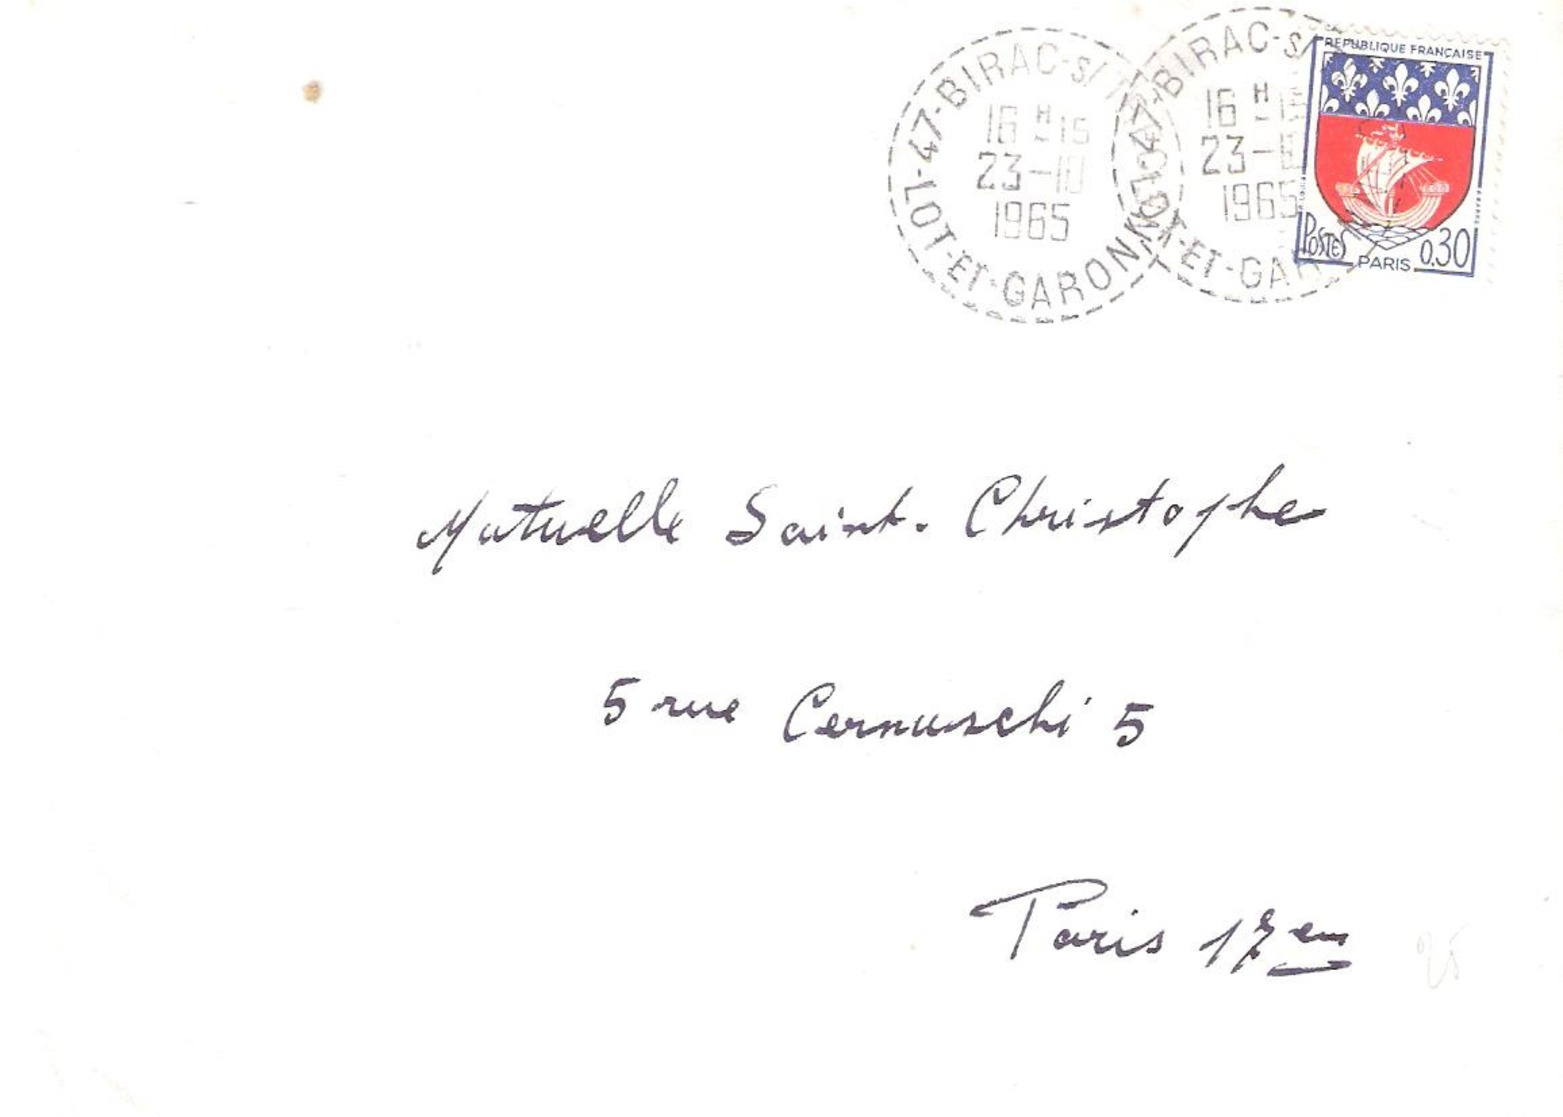 47-BIRAC-S/
16 H 15
23-10
1965
LOT-ET-GARONNE
47-BIRAC-S/
16 H
23-
1965
LOT-ET-GAR
REPUBLIQUE FRANÇAISE
POSTES PARIS 0,30
Mutuelle Saint-Christophe
5 rue Cernuschi 5
Paris 17em